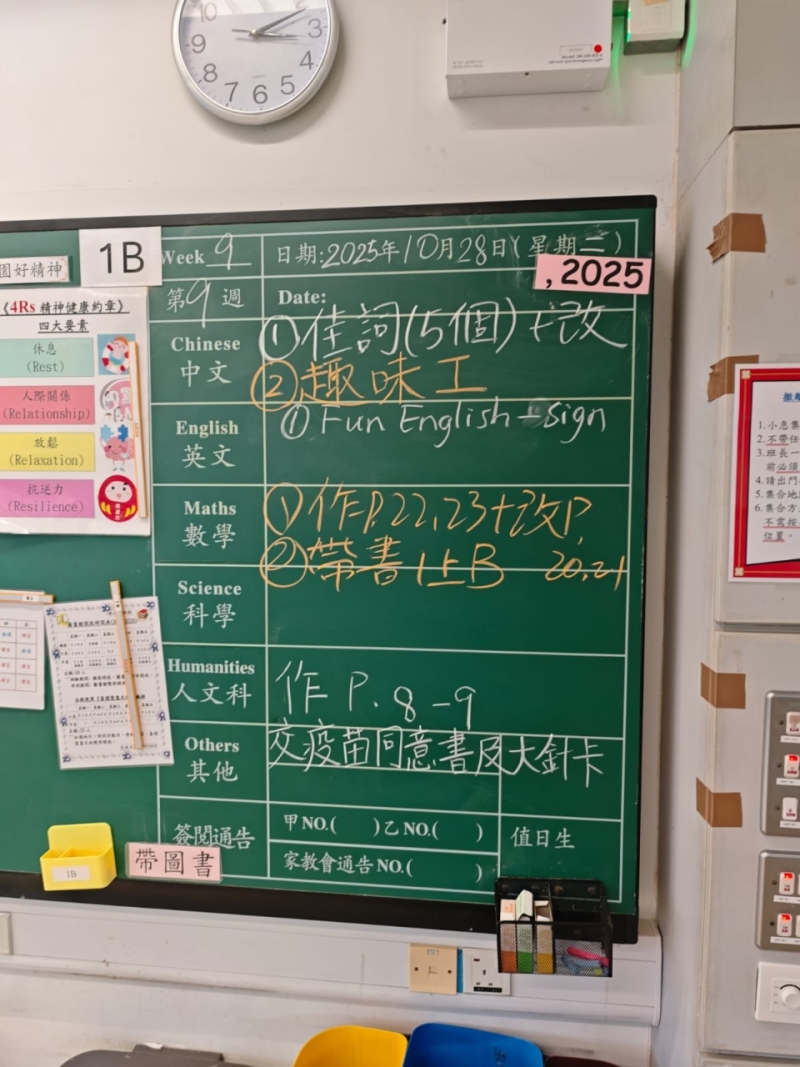 10
9
8
7
6
5
4
3
圖好精神
1B
Week 9
日期:2025年10月28日(星期二)
, 2025
第9週
Date:
《4Rs 精神健康約章》
四大要素
休息
(Rest)
人際關係
(Relationship)
放鬆
(Relaxation)
抗逆力
(Resilience)
Chinese
中文
①佳詞(5個)+改
②趣味工
English
英文
① Fun English - Sign
Maths
數學
①作P.22,23+改P.
20,21
②帶書1上B
Science
科學
Humanities
人文科
作 P. 8-9
Others
其他
交疫苗同意書及大針卡
簽閱通告
甲NO.( )乙NO.( )
家教會通告NO.( )
值日生
帶圖書
1B
1.小息集
2.不帶任
3.班長一
前必須
4.請出門
5.集合地
6.集合方
不需按
位置。